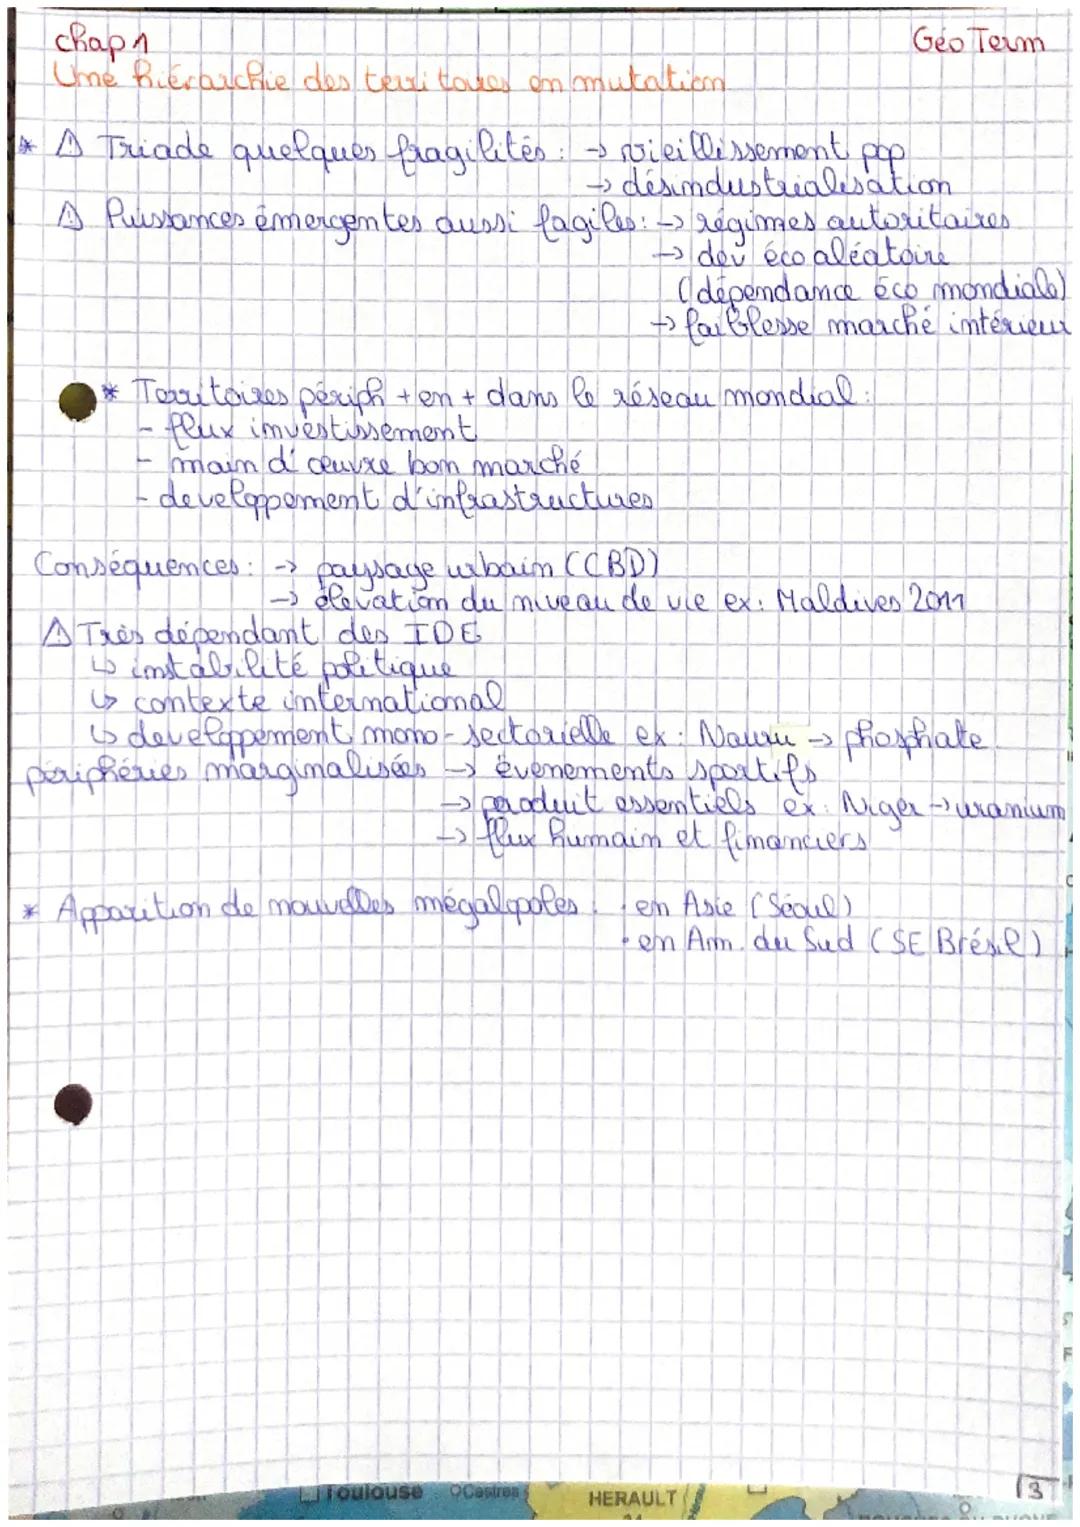 chap 1
Géo Term
Une hiérarchie des territoires en mutation
* ⚠ Triade quelques fragilités : → vieillissement pop
→ désindustrialisation
⚠ Puissances émergentes aussi fagiles : → régimes autoritaires
→ dev éco aléatoire
(dépendance éco mondiale)
→ faiblesse marché intérieur
* Territoires périph + en + dans le réseau mondial :
- flux investissement
- main d'œuvre bon marché
- developpement d'infrastructures
Conséquences : → paysage urbain (CBD)
→ élevation du niveau de vie ex : Maldives 2011
⚠ Très dépendant des IDE
↳ instabilité politique
↳ contexte international
↳ developpement mono-sectorielle ex : Nauru → phosphate
périphéries marginalisées → évenements sportifs
→ produit essentiels ex : Niger → uranium
→ flux humain et financiers
* Apparition de nouvelles mégalopoles : · en Asie (Séoul)
· en Am. du Sud (SE Brésil)
13
Toulouse
Castres
HERAULT